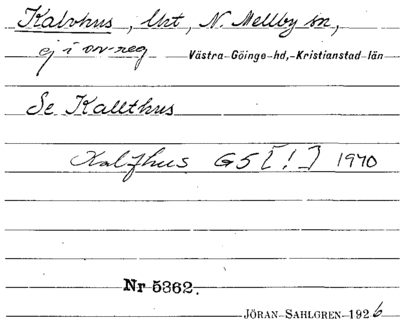 Kalvhus, lht, N. Mellby sn,
ej i ov reg Västra Göinge hd, Kristianstad län
Se Kallthus
Kalfhus G5 [!] 1970
Nr 5362.
JÖRAN SAHLGREN 1926